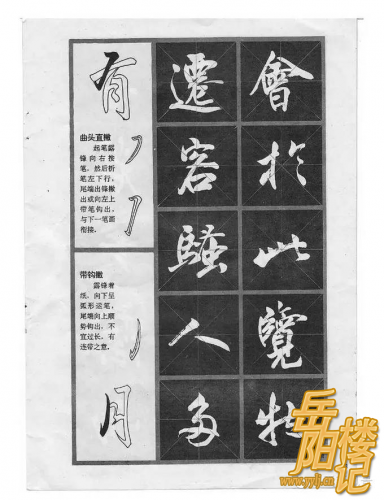 有
曲头直撇
起笔露
锋向右按
笔，然后折
笔左下行，
尾端出锋撇
出或向左上
带笔钩出，
与下一笔画
衔接。
带钩撇
露锋着
纸，向下呈
弧形运笔，
尾端向上顺
势钩出，不
宜过长，有
连带之意。
月
遷客騷人多
會於此覽物
岳阳楼记
www.yylj.cn